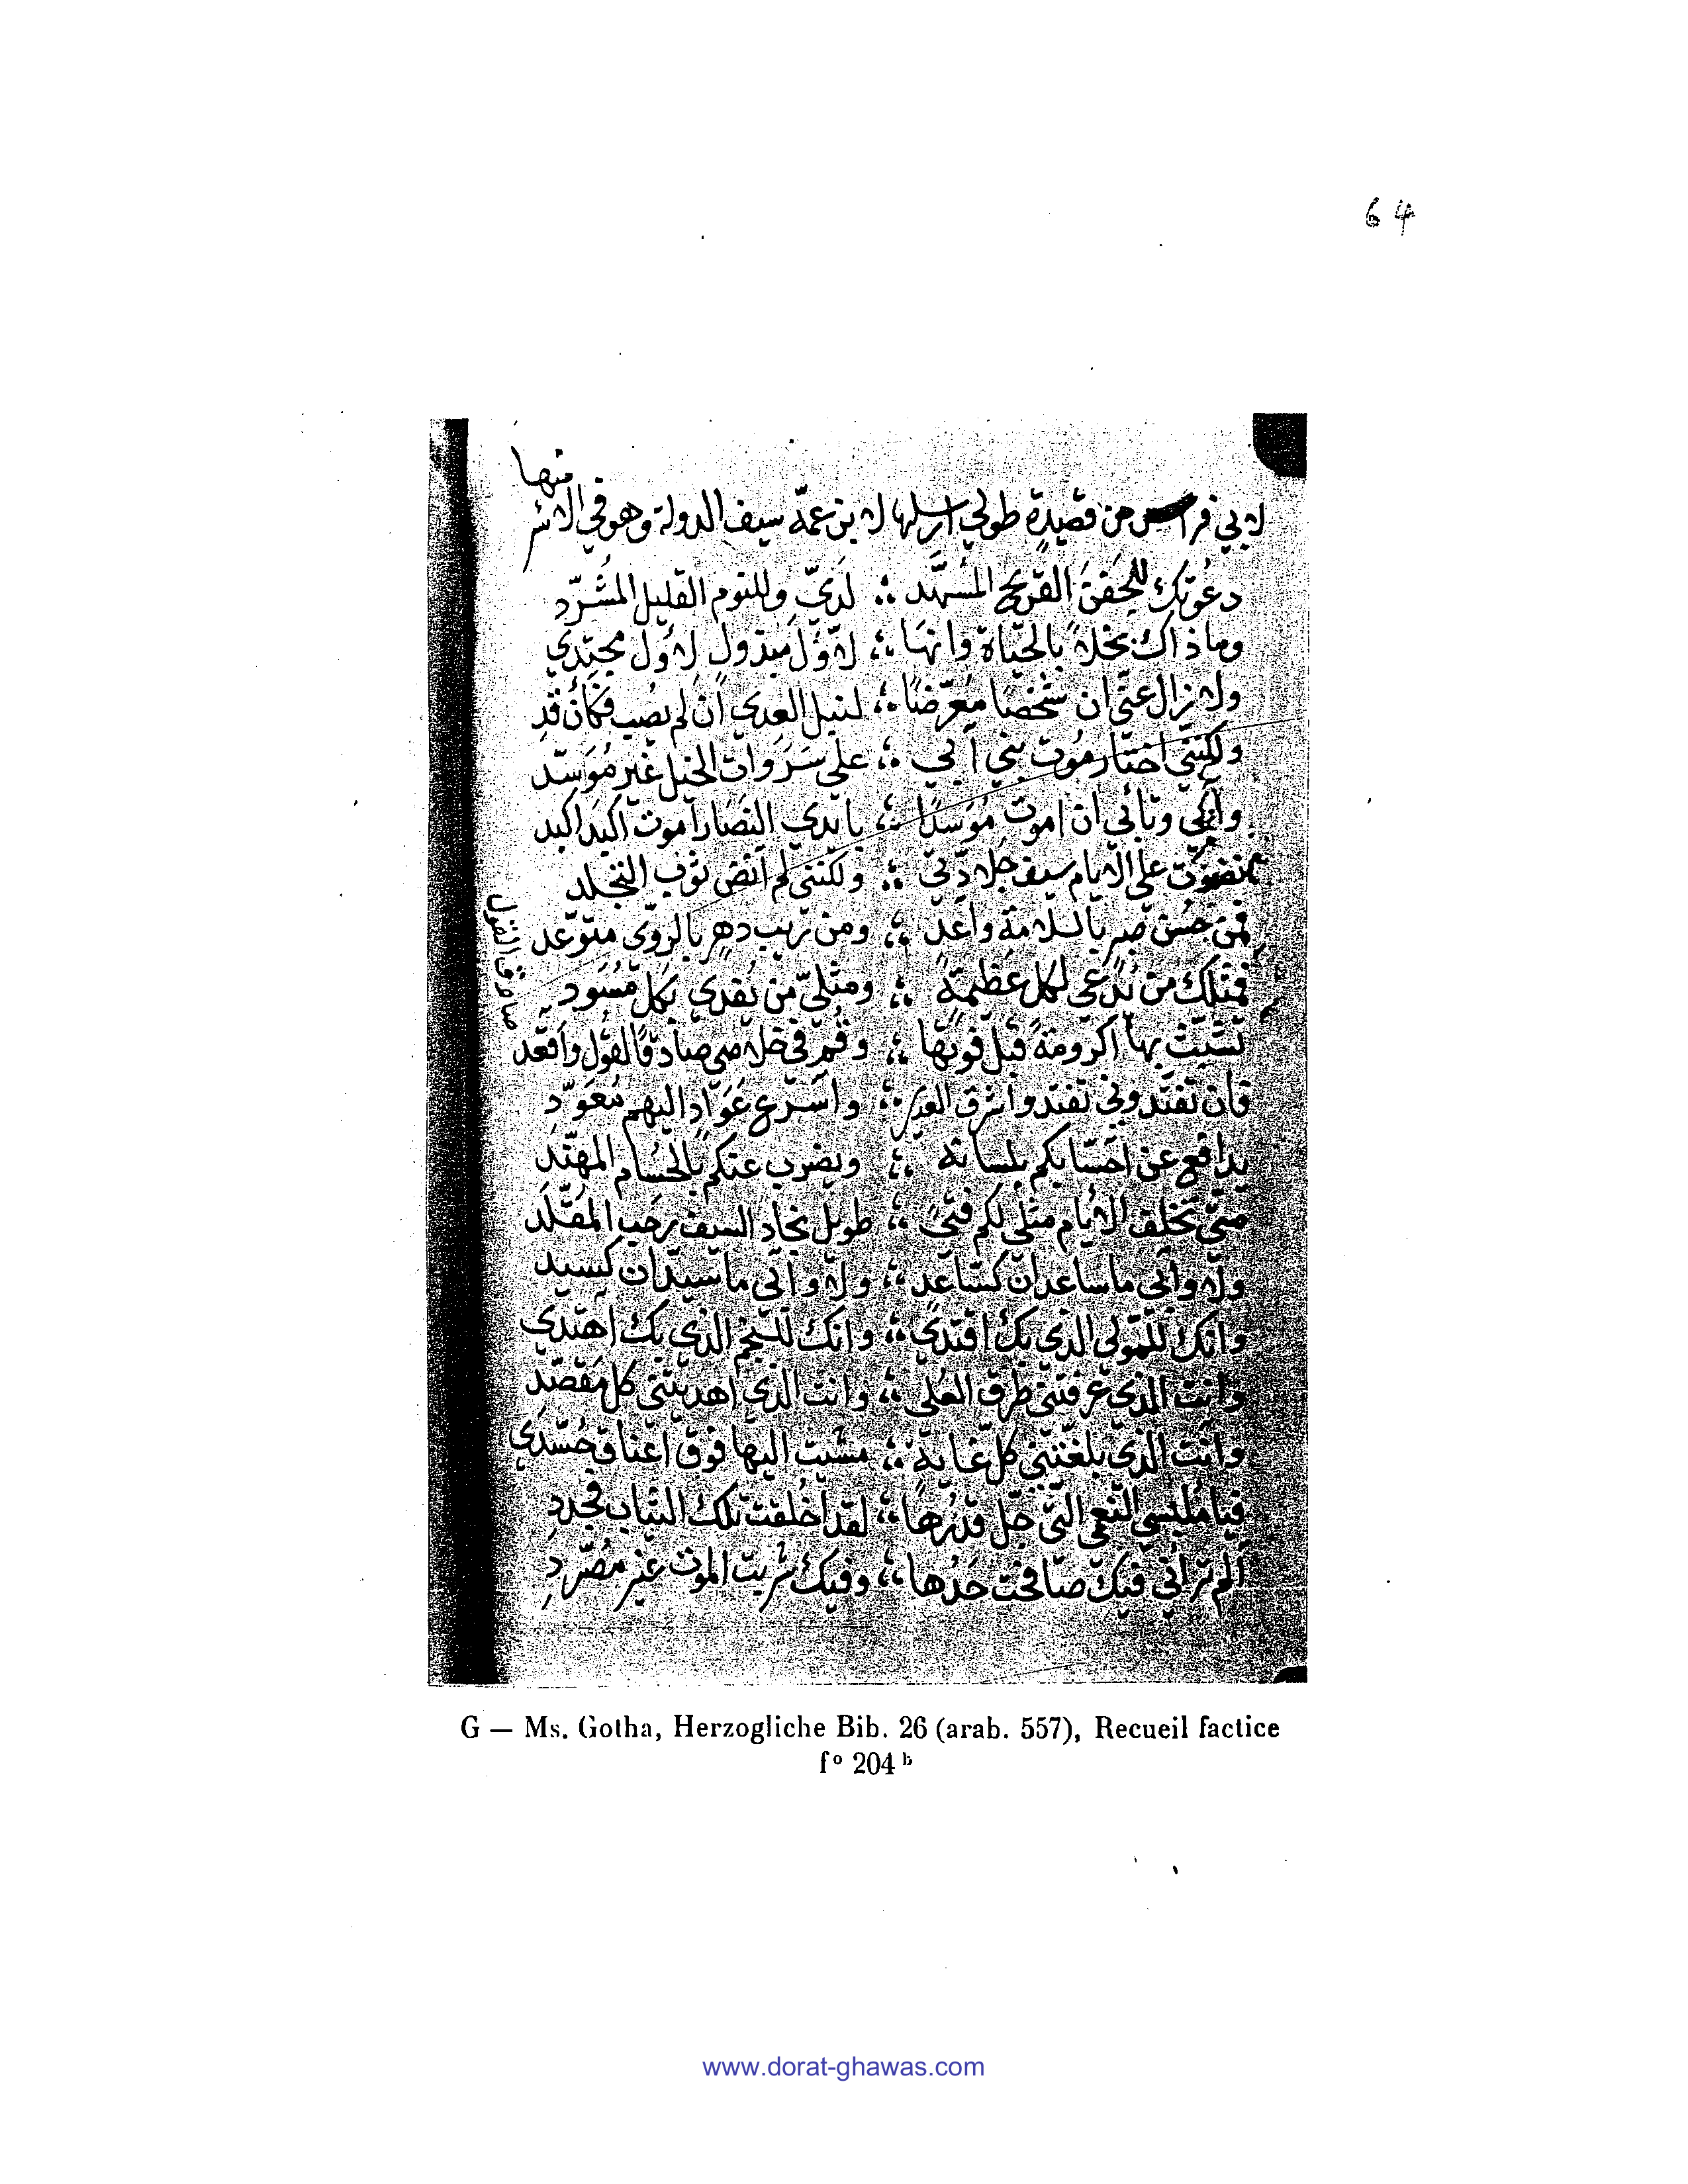 64
منها
لابي فراس من قصيدة طولي ارسلها لابن عمه سيف الدولة وهو في الاسر
دعوتك للجفن القريح المسهّد ؛ لديّ وللنوم القليل المشرّد
وما ذاك بخلا بالحياة وانها ؛ لاوّل مبذول لاول مجتدي
ولا زال عنّي ان شخصا معرّضا ؛ لنبل العدى ان لم يصب فكأن قد
ولكنني اختار موت بني أبي ؛ على سروات الخيل غير موسّد
وتأبي ان اموت موسدا ؛ بايدى النصارا موت اكبد اكبد
نضوت على الايام سيف جلادتي ؛ ولكنني لم انض ثوب التجلد
فمن حسن صبر بالسلامة واعد ؛ ومن ريب دهر بالردى متوعّد
فمثلك من يدعى لكل عظيمة ؛ ومثلي من يفدى بكل مسود
تشبث بها اكرومة قبل فوتها ؛ وقم في خلاصي صادق القول واقعد
صادق القول
فان تفتدوني تفتدوا شرق العلا ؛ واسرع عوّاد اليهم معوّد
يدافع عن احسابكم بلسانه ؛ ويضرب عنكم بالحسام المهنّد
متى تخلف الايام مثلي لكم فتى ؛ طويل نجاد السيف رحب المقلّد
ولا واني ما ساعدان كساعد ؛ ولا واني ما سيدان كسيد
وانك للمولى الذي بك اقتدي ؛ وانك للنجم الذي بك اهتدي
وانت الذي عرفتني طرق العلى ؛ وانت الذي اهديتني كل مقصد
وانت الذي بلغتني كل غاية ؛ مشيت اليها فوق اعناق حسّدي
فيا ملبسي النعمى التي جل قدرها ؛ لقد اخلقت تلك الثياب فجدد
الم تر اني فيك صافحت حدها ؛ وفيك شربت الموت غير مصرّد
G — Ms. Gotha, Herzogliche Bib. 26 (arab. 557), Recueil factice
f° 204 b
www.dorat-ghawas.com